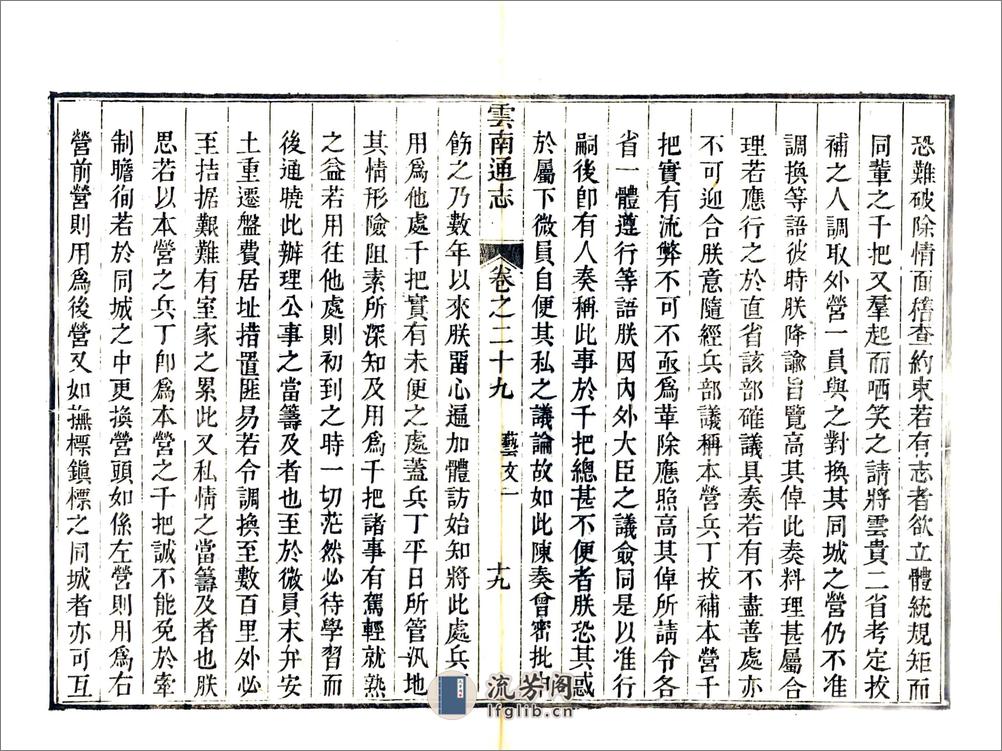 恐難破除情面稽查約束若有志者欲立體統規矩而
同輩之千把又羣起而哂笑之請將雲貴二省考定拔
補之人調取外營一員與之對換其同城之營仍不准
調換等語彼時朕降諭旨覽高其倬此奏料理甚屬合
理若應行之於直省該部確議具奏若有不盡善處亦
不可迎合朕意隨經兵部議稱本營兵丁拔補本營千
把實有流弊不可不亟為革除應照高其倬所請令各
省一體遵行等語朕因內外大臣之議僉同是以准行
嗣後卽有人奏稱此事於千把總甚不便者朕恐其惑
於屬下微員自便其私之議論故如此陳奏曾密批申
雲南通志 卷之二十九 藝文一 十九
飭之乃數年以來朕畱心遍加體訪始知將此處兵丁
用爲他處千把實有未便之處葢兵丁平日所管汛地
其情形險阻素所深知及用爲千把諸事有駕輕就熟
之益若用往他處則初到之時一切茫然必待學習而
後通曉此辦理公事之當籌及者也至於微員末弁安
土重遷盤費居址措置匪易若令調換至數百里外必
至拮据艱難有室家之累此又私情之當籌及者也朕
思若以本營之兵丁卽爲本營之千把誠不能免於牽
制瞻徇若於同城之中更換營頭如係左營則用爲右
營前營則用爲後營又如撫標鎭標之同城者亦可互
流芳阁
lfglib.cn